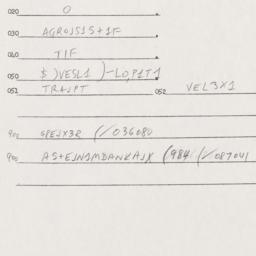 020 0
030 AGROJS1S+1F
040 TIF
050 $)VESL1)-LO,P1T1
051 TRAJPT 052 VEL3X1
900 SPEJX3R (/036080
900 AS+EJN1MDANKAJX (984 (/087041